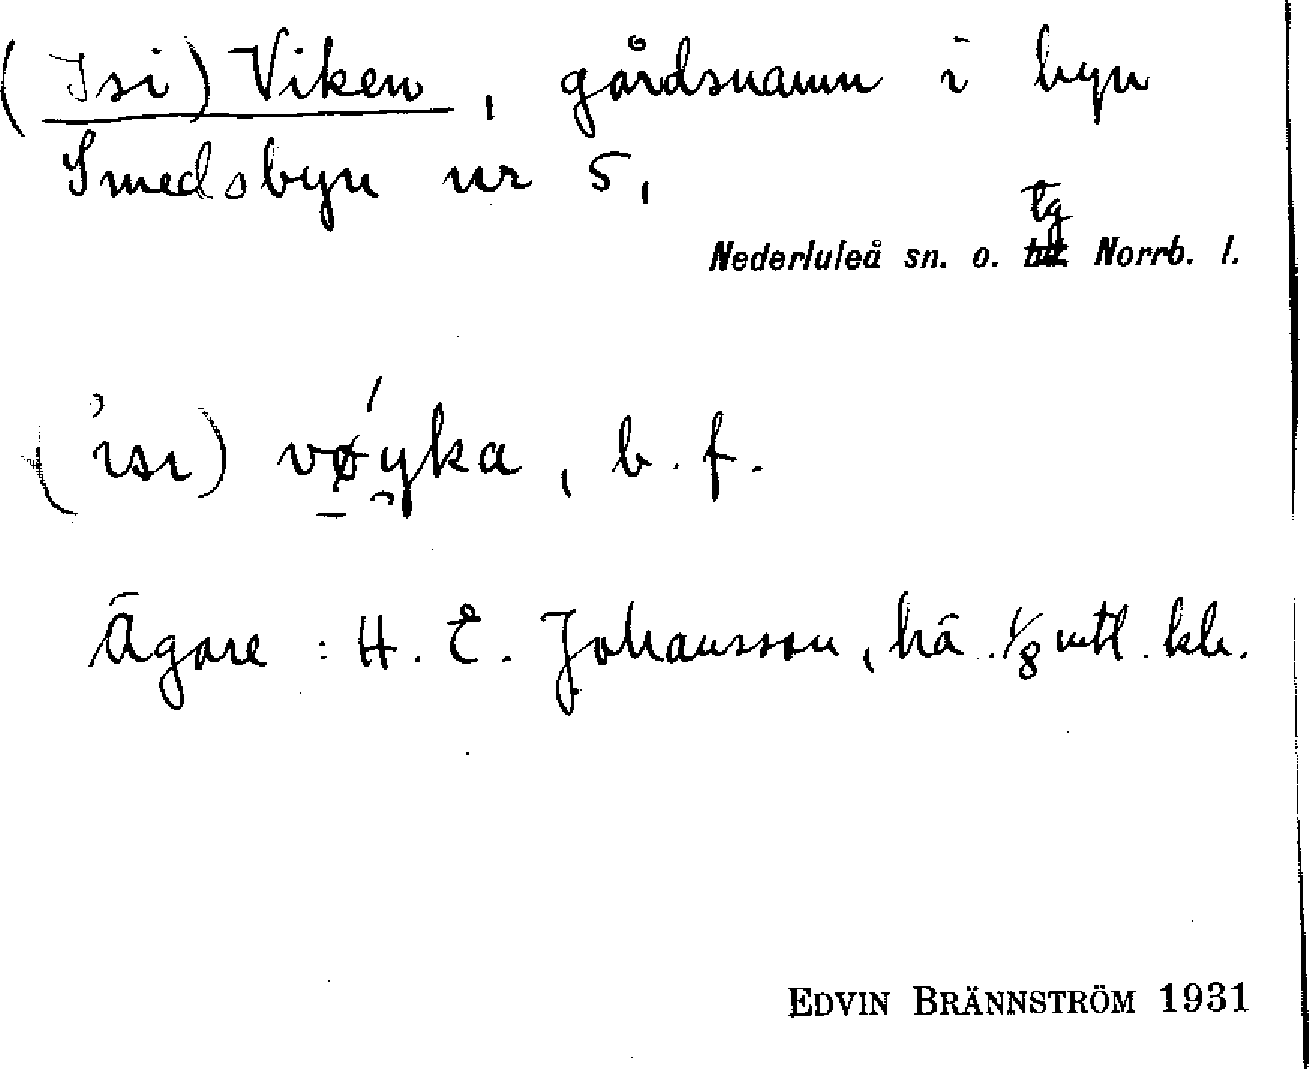 (Isi) Viken, gårdsnamn i byn
Smedsbyn nr 5,
tg
Nederluleå sn. o. Norrb. l.
('ısı) vǿyka, b. f.
Ägare: H. E. Johansson, hä. 1/8 mtl. kr.
EDVIN BRÄNNSTRÖM 1931